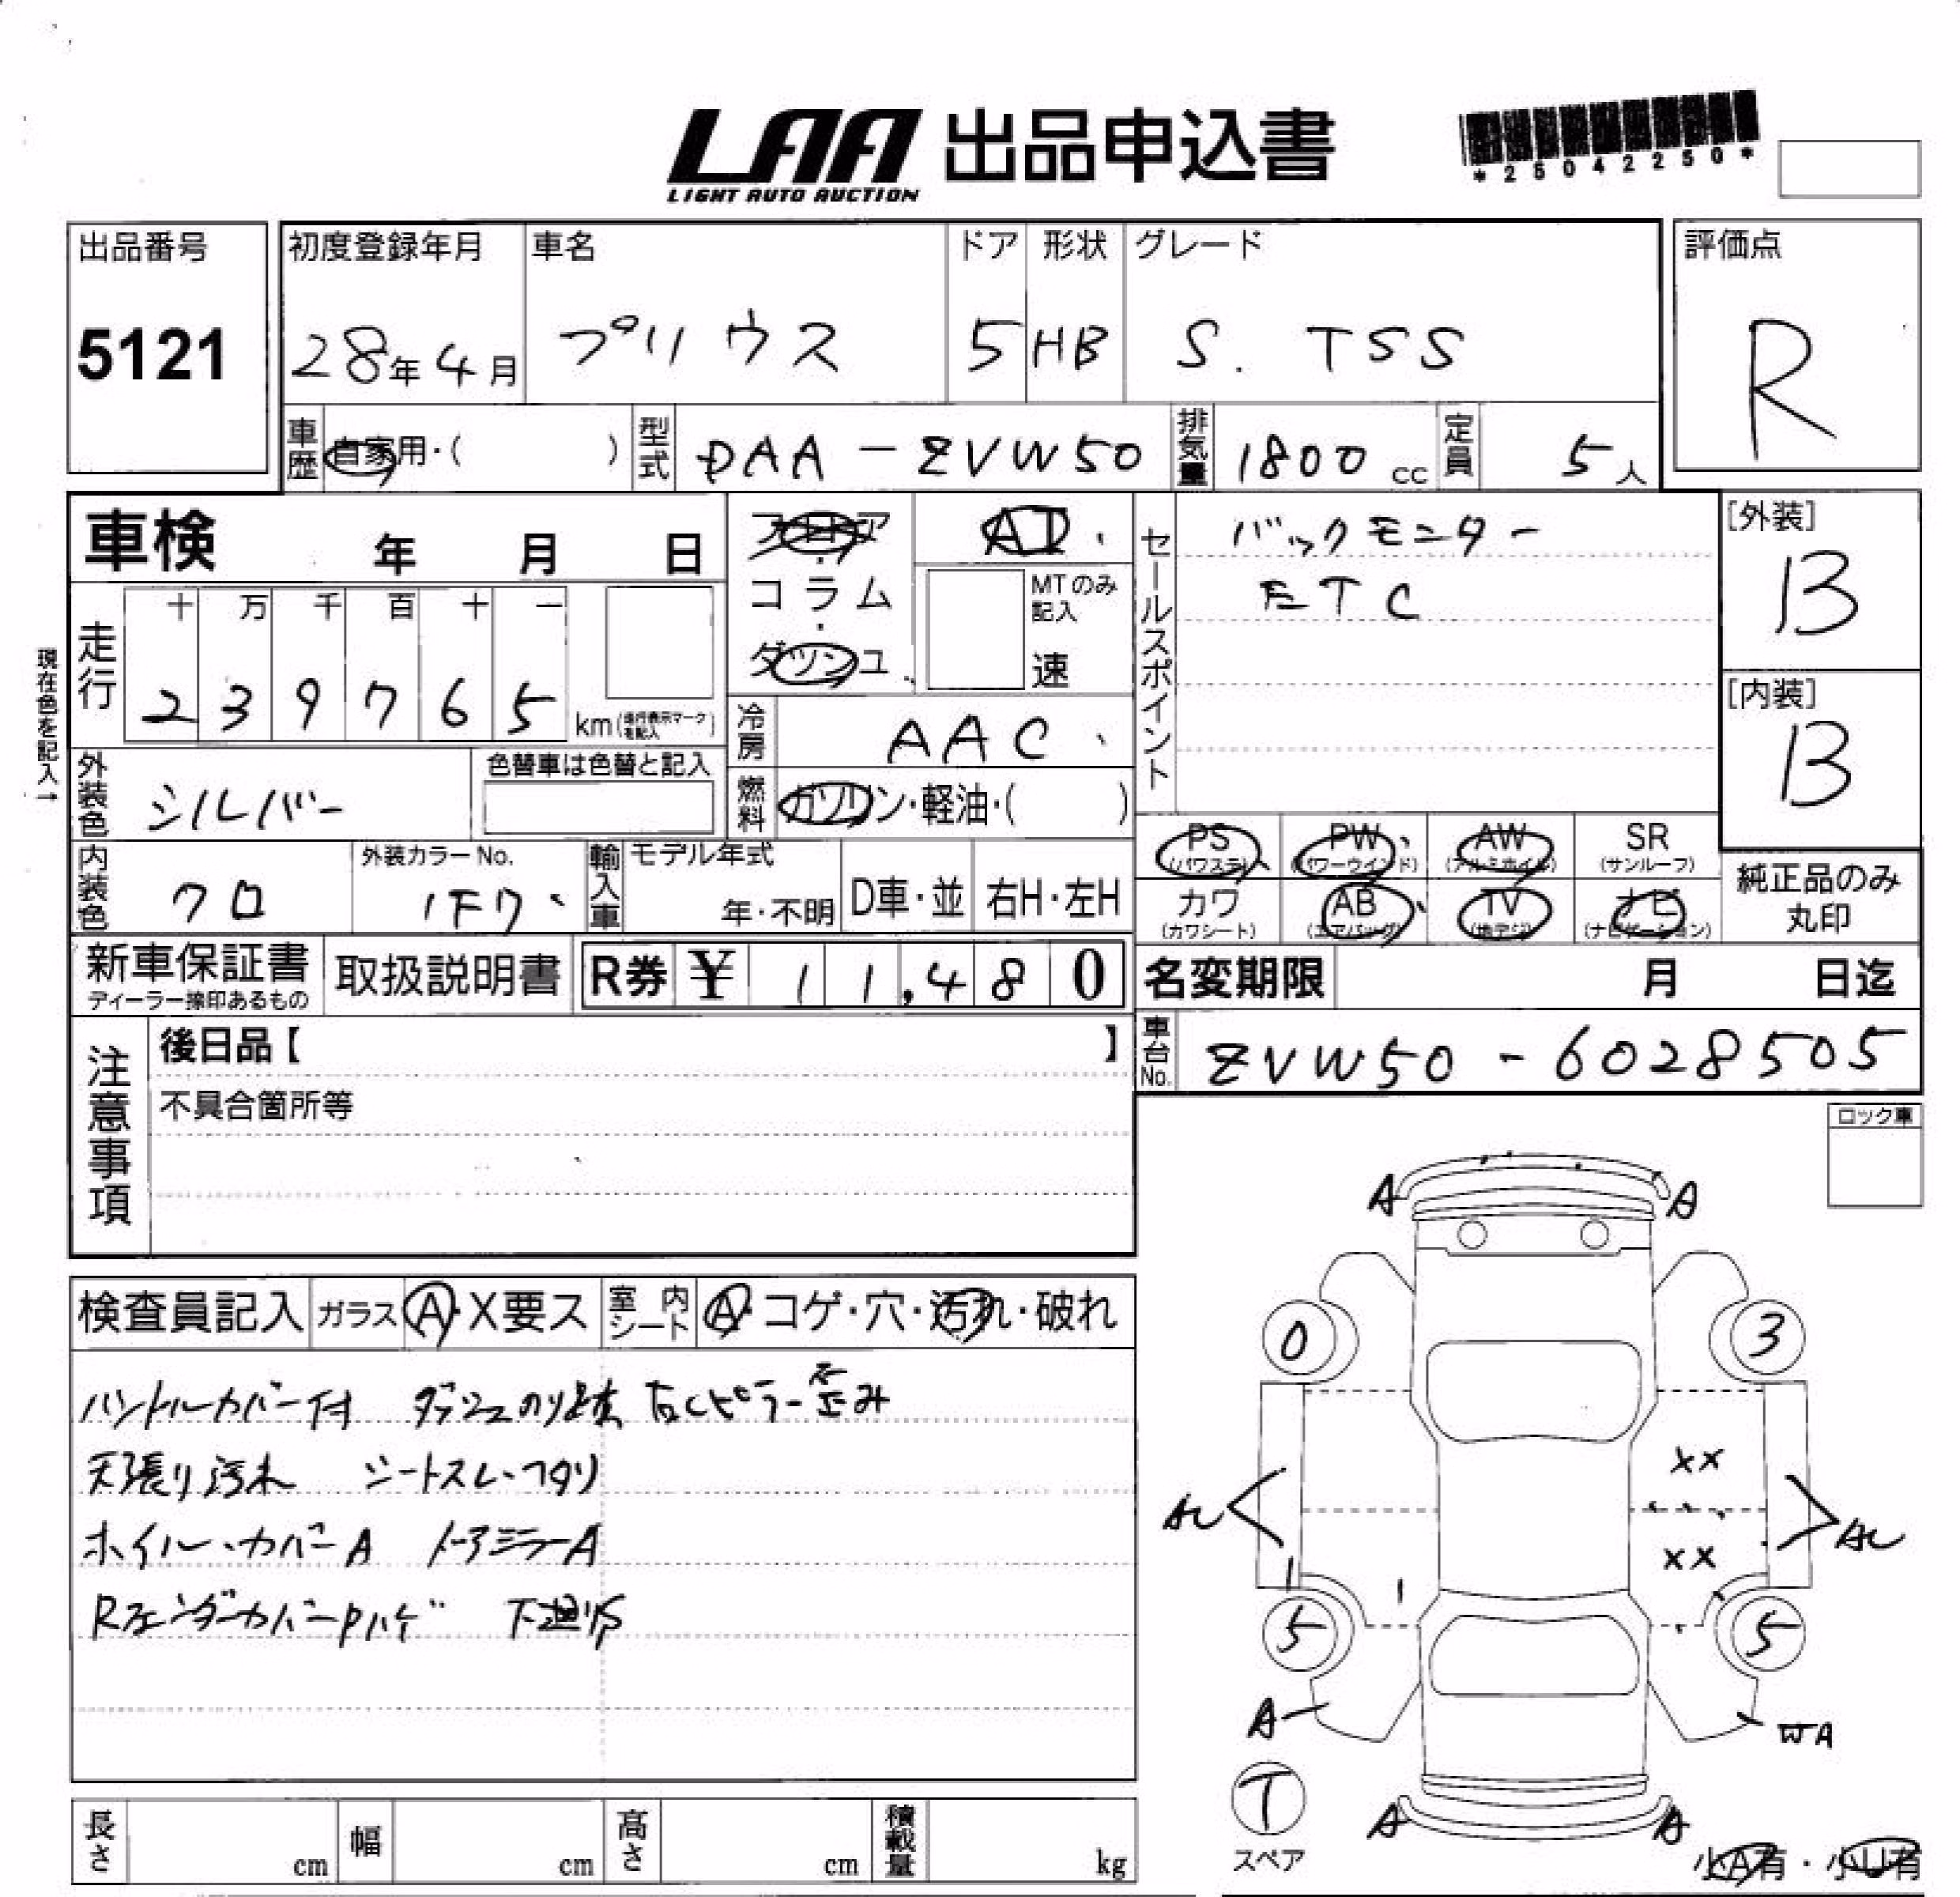 LAA 出品申込書
LIGHT AUTO AUCTION
*25042250*
出品番号 初度登録年月 車名 ドア 形状 グレード 評価点
5121 28年4月 プリウス 5 HB S. TSS R
車歴 自家用・( ) 型式 DAA-ZVW50 排気量 1800cc 定員 5人
車検 年 月 日
フロア・コラム・ダッシュ
AT
MTのみ記入
速
セールスポイント
バックモニター
ETC
[外装]
B
[内装]
B
現在色を記入→
走行 十 万 千 百 十 一
2 3 9 7 6 5 km(走行表示マークを記入)
冷房 AAC
燃料 ガソリン・軽油・( )
外装色 シルバー 色替車は色替と記入
内装色 クロ 外装カラーNo. 1F7 輸入車 モデル年式 年・不明 D車・並 右H・左H
PS (パワステ) PW (パワーウインド) AW (アルミホイル) SR (サンルーフ)
カワ (カワシート) AB (エアバッグ) TV (地デジ) ナビ (ナビゲーション)
純正品のみ丸印
新車保証書 ディーラー捺印あるもの 取扱説明書 R券 ¥ 11,480
名変期限 月 日迄
車台No. ZVW50-6028505
注意事項
後日品【 】
不具合箇所等
ロック車
検査員記入 ガラス A・X要ス 室内シート A・コゲ・穴・汚れ・破れ
ハンドルカバー付 ダッシュのり跡 右Cピラー歪み
天張り汚れ シートスレ・ヘタリ
ホイル・カバーA ドアミラーA
RフェンダーカバーPハゲ 下廻りS
A A
0 3
XX
AU AU
XX
5 5
A WA
T
スペア
A A
小A有・小U有
長さ cm 幅 cm 高さ cm 積載量 kg